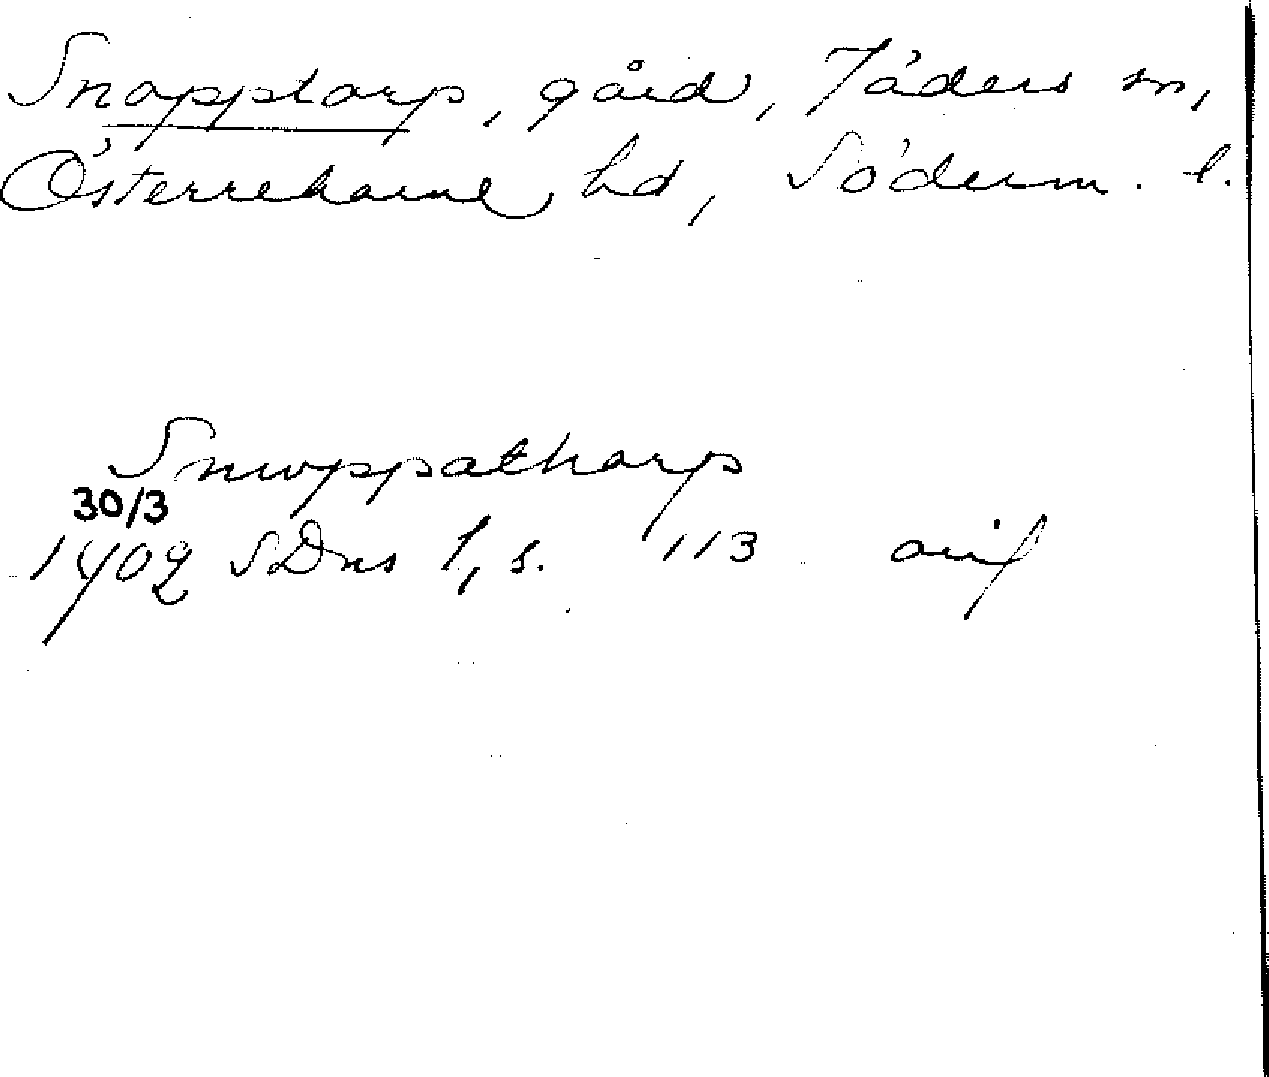 Snopptorp, gård, Jäders sn,
Österrekarne hd, Söderm. l.
Snwppathorp
30/3
1402 SDns 1, s. 113 avs